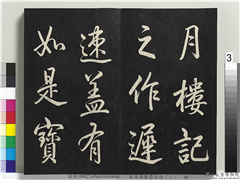 月樓記
之作遲
速蓋有
如是寶
3